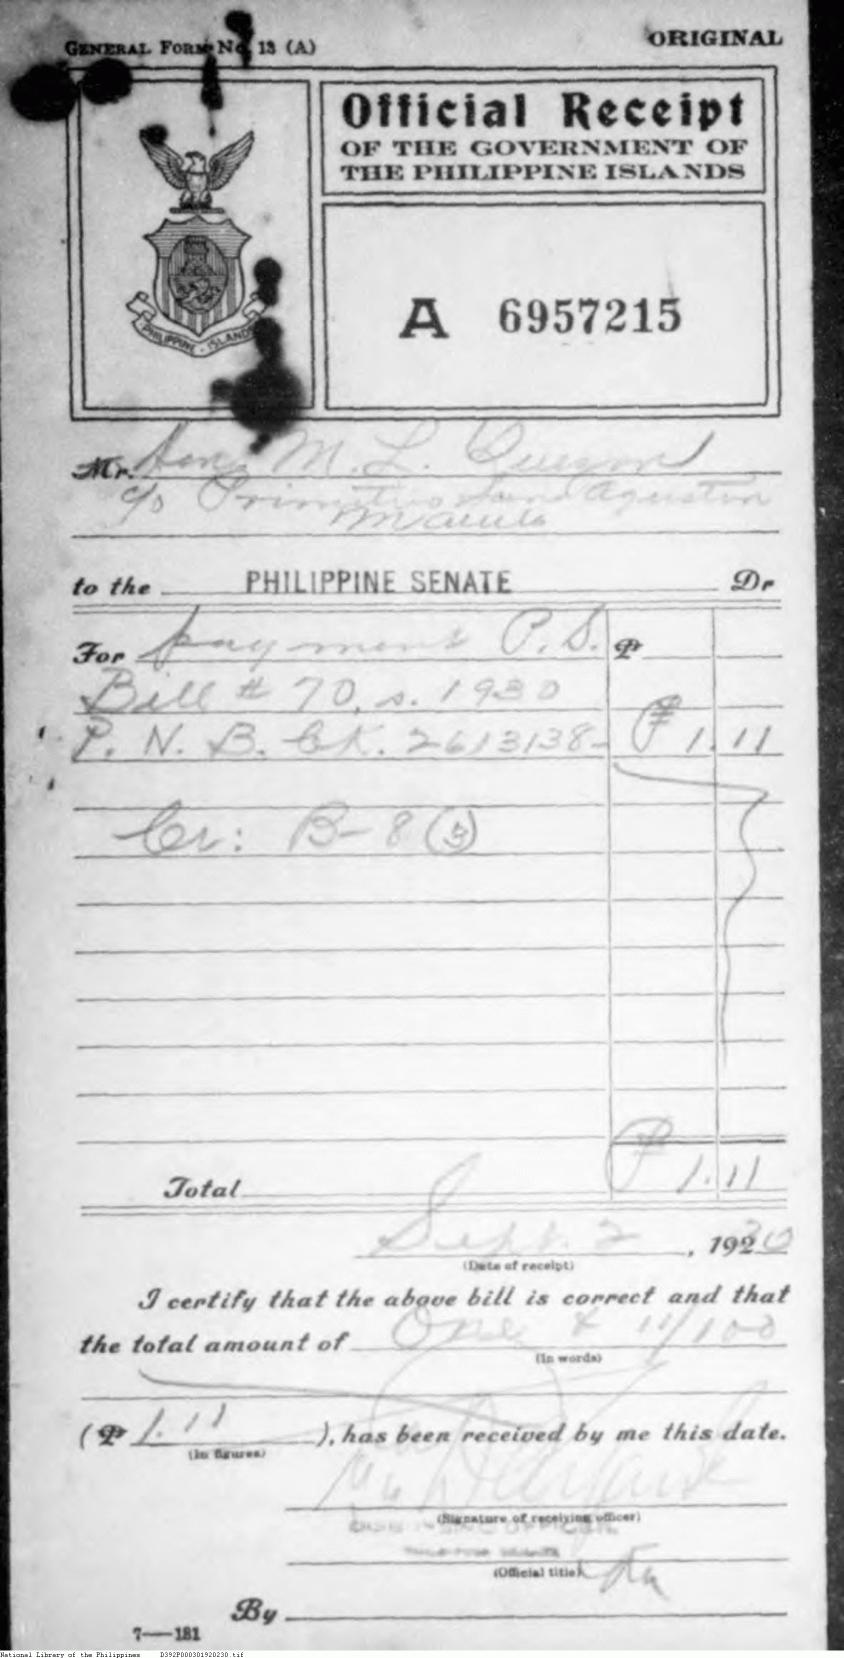 GENERAL FORM No. 13 (A)
ORIGINAL
Official Receipt
OF THE GOVERNMENT OF
THE PHILIPPINE ISLANDS
PHILIPPINE - ISLANDS
A 6957215
Mr. Hon. M. L. Quezon
c/o Primitivo San Agustin
Manila
to the PHILIPPINE SENATE Dr
For payment P.S. ₱
Bill # 70, s. 1930
P. N. B. Ck. 2613138- ₱ 1.11
Cr: B-8 (3)
Total ₱ 1.11
Sept. 2, 1930
(Date of receipt)
I certify that the above bill is correct and that
the total amount of One & 11/100
(In words)
(₱ 1.11), has been received by me this date.
(In figures)
(Signature of receiving officer)
DISBURSING OFFICER
PHILIPPINE SENATE
(Official title)
By
7—181
National Library of the Philippines D392P000301920230.tif